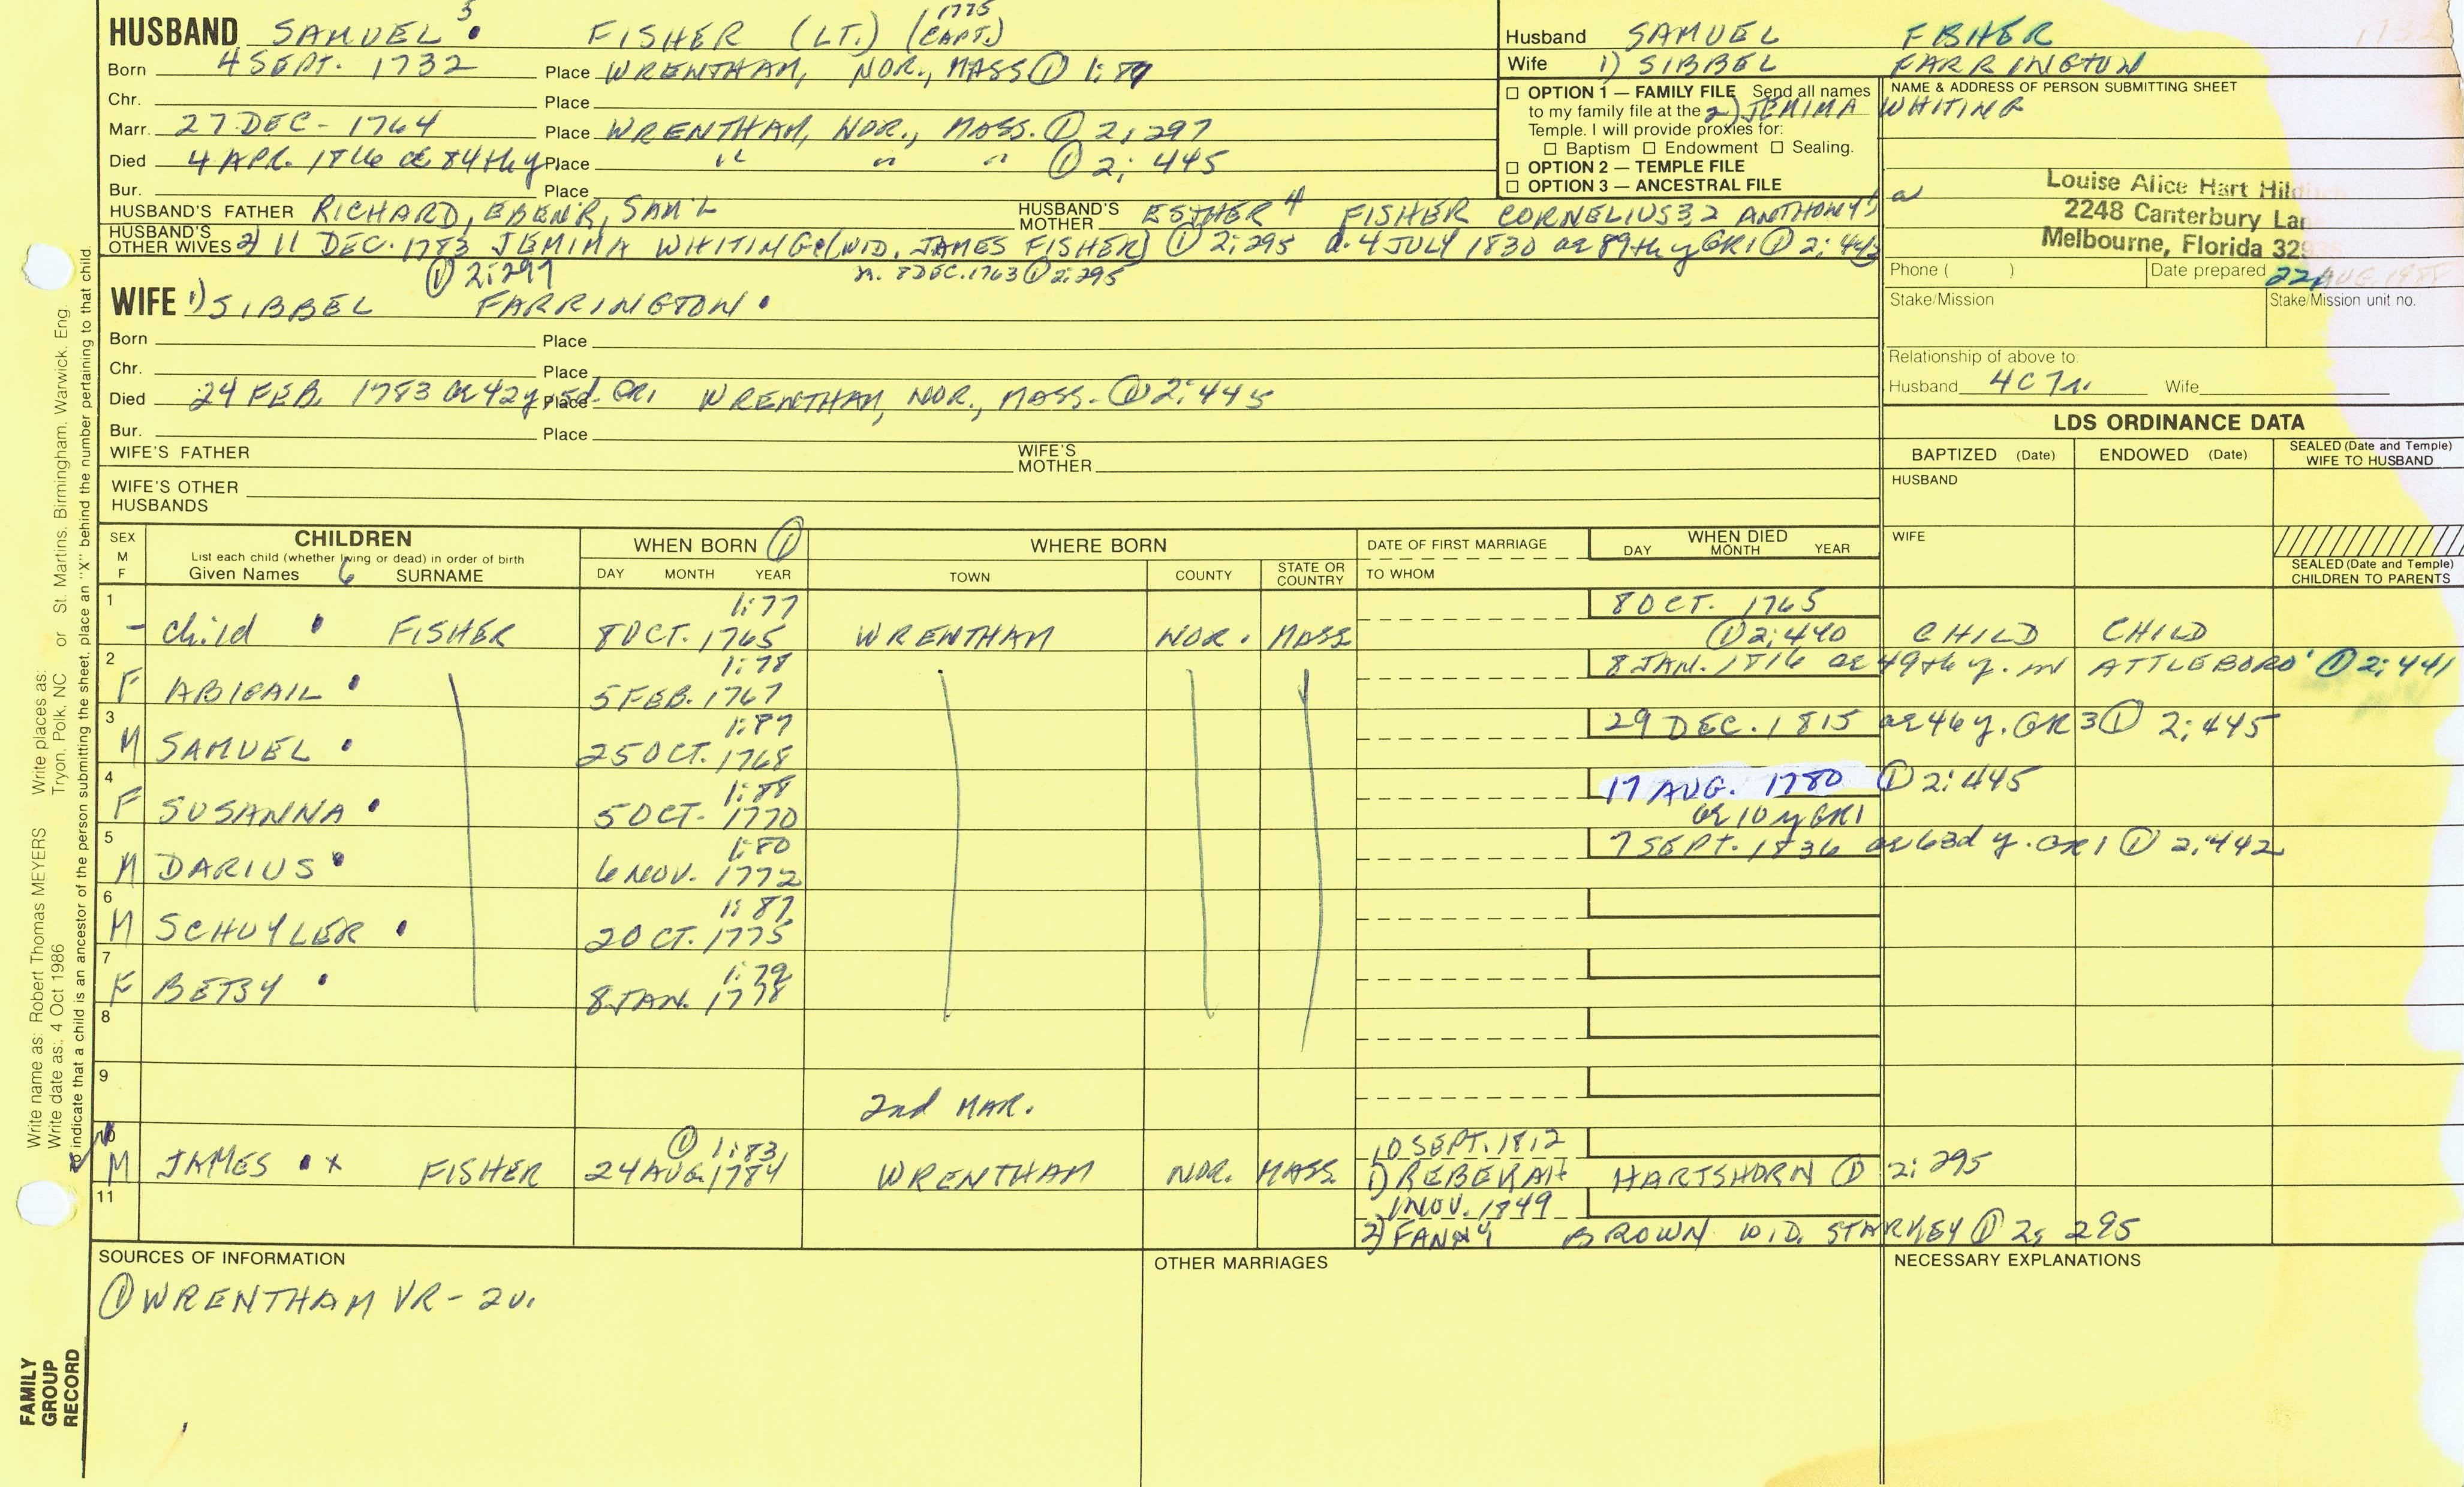 HUSBAND SAMUEL 5 FISHER (LT.) (CAPT.) 1775
Born 4 SEPT. 1732 Place WRENTHAM, NOR., MASS ① 1:87
Chr. Place
Marr. 27 DEC - 1764 Place WRENTHAM, NOR., MASS. ① 2:297
Died 4 APR. 1816 ae 84th y Place " " " ① 2: 445
Bur. Place
HUSBAND'S FATHER RICHARD, EBEN'R, SAM'L HUSBAND'S MOTHER ESTHER 4 FISHER CORNELIUS 3, 2 ANTHONY 1
HUSBAND'S OTHER WIVES 2) 11 DEC. 1783 JEMIMA WHITING (WID. JAMES FISHER) ① 2:295 d. 4 JULY 1830 ae 89th y GR1 ① 2:443
① 2:297 m. 8 DEC. 1763 ① 2:295
WIFE 1) SIBBEL FARRINGTON
Born Place
Chr. Place
Died 24 FEB. 1783 ae 42 y Place GR1 WRENTHAM, NOR., MASS. ① 2:445
Bur. Place
WIFE'S FATHER WIFE'S MOTHER
WIFE'S OTHER HUSBANDS
Husband SAMUEL FISHER
Wife 1) SIBBEL FARRINGTON
☐ OPTION 1 — FAMILY FILE Send all names
to my family file at the 2) JEMIMA WHITING
Temple. I will provide proxies for:
☐ Baptism ☐ Endowment ☐ Sealing.
☐ OPTION 2 — TEMPLE FILE
☐ OPTION 3 — ANCESTRAL FILE
NAME & ADDRESS OF PERSON SUBMITTING SHEET
Louise Alice Hart
2248 Canterbury
Melbourne, Florida
Phone ( ) Date prepared 22 AUG
Stake/Mission Stake/Mission unit no.
Relationship of above to:
Husband 4C7r. Wife
LDS ORDINANCE DATA
BAPTIZED (Date) ENDOWED (Date) SEALED (Date and Temple) WIFE TO HUSBAND
HUSBAND
WIFE
SEALED (Date and Temple) CHILDREN TO PARENTS
SEX M F CHILDREN
List each child (whether living or dead) in order of birth
Given Names SURNAME
WHEN BORN ① DAY MONTH YEAR
WHERE BORN TOWN COUNTY STATE OR COUNTRY
DATE OF FIRST MARRIAGE TO WHOM
WHEN DIED DAY MONTH YEAR
1 - child FISHER 1:77 8 OCT. 1765 WRENTHAM NOR. MASS 8 OCT. 1765 ① 2:440 CHILD CHILD
2 F ABIGAIL 1:78 5 FEB. 1767 8 JAN. 1816 ae 49th y. in ATTLEBORO' ① 2:441
3 M SAMUEL 1:87 25 OCT. 1768 29 DEC. 1815 ae 46 y. GR 3 ① 2:445
4 F SUSANNA 1:88 5 OCT. 1770 17 AUG. 1780 ① 2:445 ae 10 y GR1
5 M DARIUS 1:80 6 NOV. 1772 7 SEPT. 1836 ae 63d y. GR1 ① 2:442
6 M SCHUYLER 1:87 2 OCT. 1775
7 F BETSY 1:79 8 JAN. 1778
8
9 2nd MAR.
10 M JAMES x FISHER ① 1:83 24 AUG. 1784 WRENTHAM NOR. MASS 10 SEPT. 1812
1) REBEKAH HARTSHORN ① 2:295
11 1 NOV. 1849
2) FANNY BROWN WID. STARKEY ① 2: 295
SOURCES OF INFORMATION OTHER MARRIAGES NECESSARY EXPLANATIONS
① WRENTHAM VR - 2 v.
Write name as: Robert Thomas MEYERS Write places as: St. Martins, Birmingham, Warwick, Eng.
Write date as: 4 Oct 1986 Tryon, Polk, NC or
To indicate that a child is an ancestor of the person submitting the sheet, place an "X" behind the number pertaining to that child.
FAMILY
GROUP
RECORD